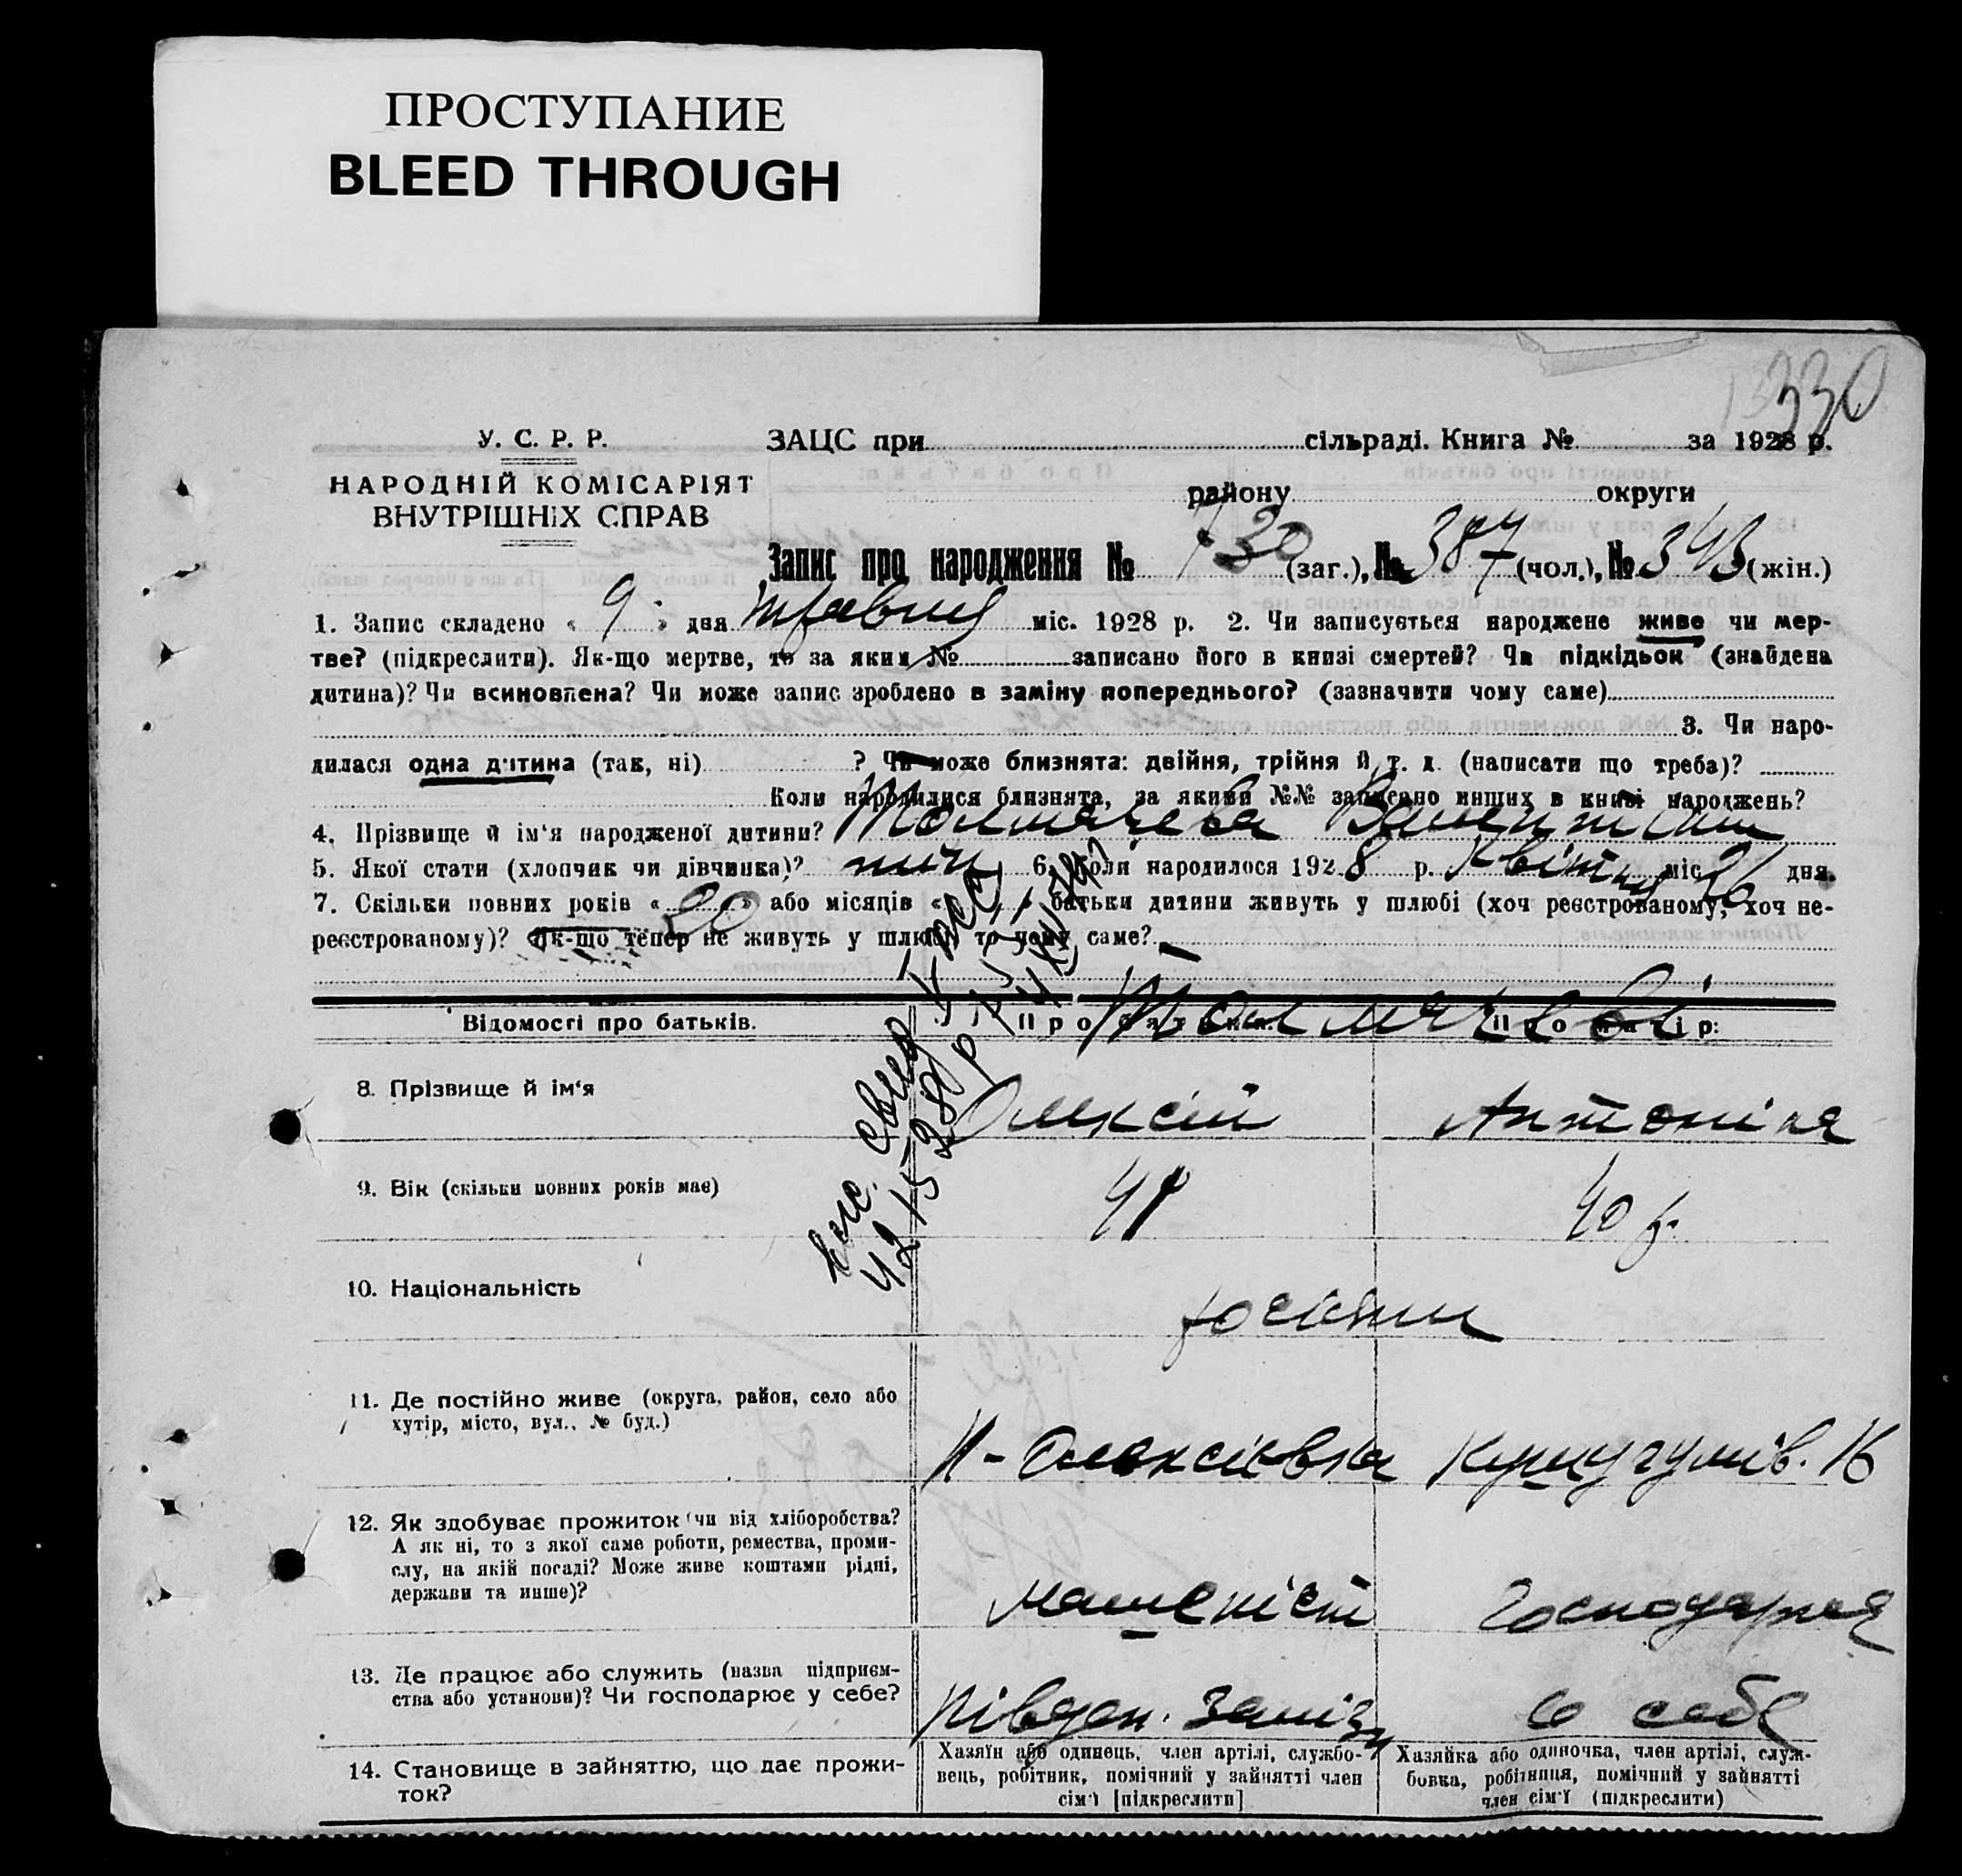 ПРОСТУПАНИЕ
BLEED THROUGH
330
У. С. Р. Р.
НАРОДНІЙ КОМІСАРІЯТ
ВНУТРІШНІХ СПРАВ
ЗАЦС при сільраді. Книга № за 1928 р.
району округи
Запис про народження № 730 (заг.), № 387 (чол.), № 343 (жін.)
1. Запис складено « 9 » дня травня міс. 1928 р. 2. Чи записується народжене живе чи мер-
тве? (підкреслити). Як-що мертве, то за яким № записано його в книзі смертей? Чи підкідьок (знайдена
дитина)? Чи всиновлена? Чи може запис зроблено в заміну попереднього? (зазначити чому саме)
3. Чи наро-
дилася одна дитина (так, ні) ? Чи може близнята: двійня, трійня й т. д. (написати що треба)?
Коли народилися близнята, за якими №№ записано инших в книзі народжень?
4. Прізвище й ім‘я народженої дитини? Толмачева Валентина
5. Якої стати (хлопчик чи дівчинка)? 6. Коли народилося 1928 р. Квітня міс. 26 дня.
7. Скільки повних років « 20 » або місяців « » батьки дитини живуть у шлюбі (хоч реєстрованому, хоч не-
реєстрованому)? Як-що тепер не живуть у шлюбі, то чому саме?
Відомості про батьків. Про батька: Про матір:
Толмачеві
8. Прізвище й ім‘я Олексій Антоніна
9. Вік (скільки повних років має) 41 40 р.
10. Національність росіяни
11. Де постійно живе (округа, район, село або
хутір, місто, вул., № буд.)
Н-Олексієвка 16
12. Як здобуває прожиток (чи від хліборобства?
А як ні, то з якої саме роботи, ремества, проми-
слу, на якій посаді? Може живе коштами рідні,
держави та инше)?
машеніст Господарка
13. Де працює або служить (назва підприєм-
ства або установи)? Чи господарює у себе?
Півден. Заліз у себе
14. Становище в зайняттю, що дає прожи-
ток?
Хазяїн або одинець, член артілі, службо-
вець, робітник, помічний у зайнятті член
сім‘ї [підкреслити]
Хазяйка або одиночка, член артілі, служ-
бовка, робітниця, помічний у зайнятті
член сім‘ї (підкреслити)